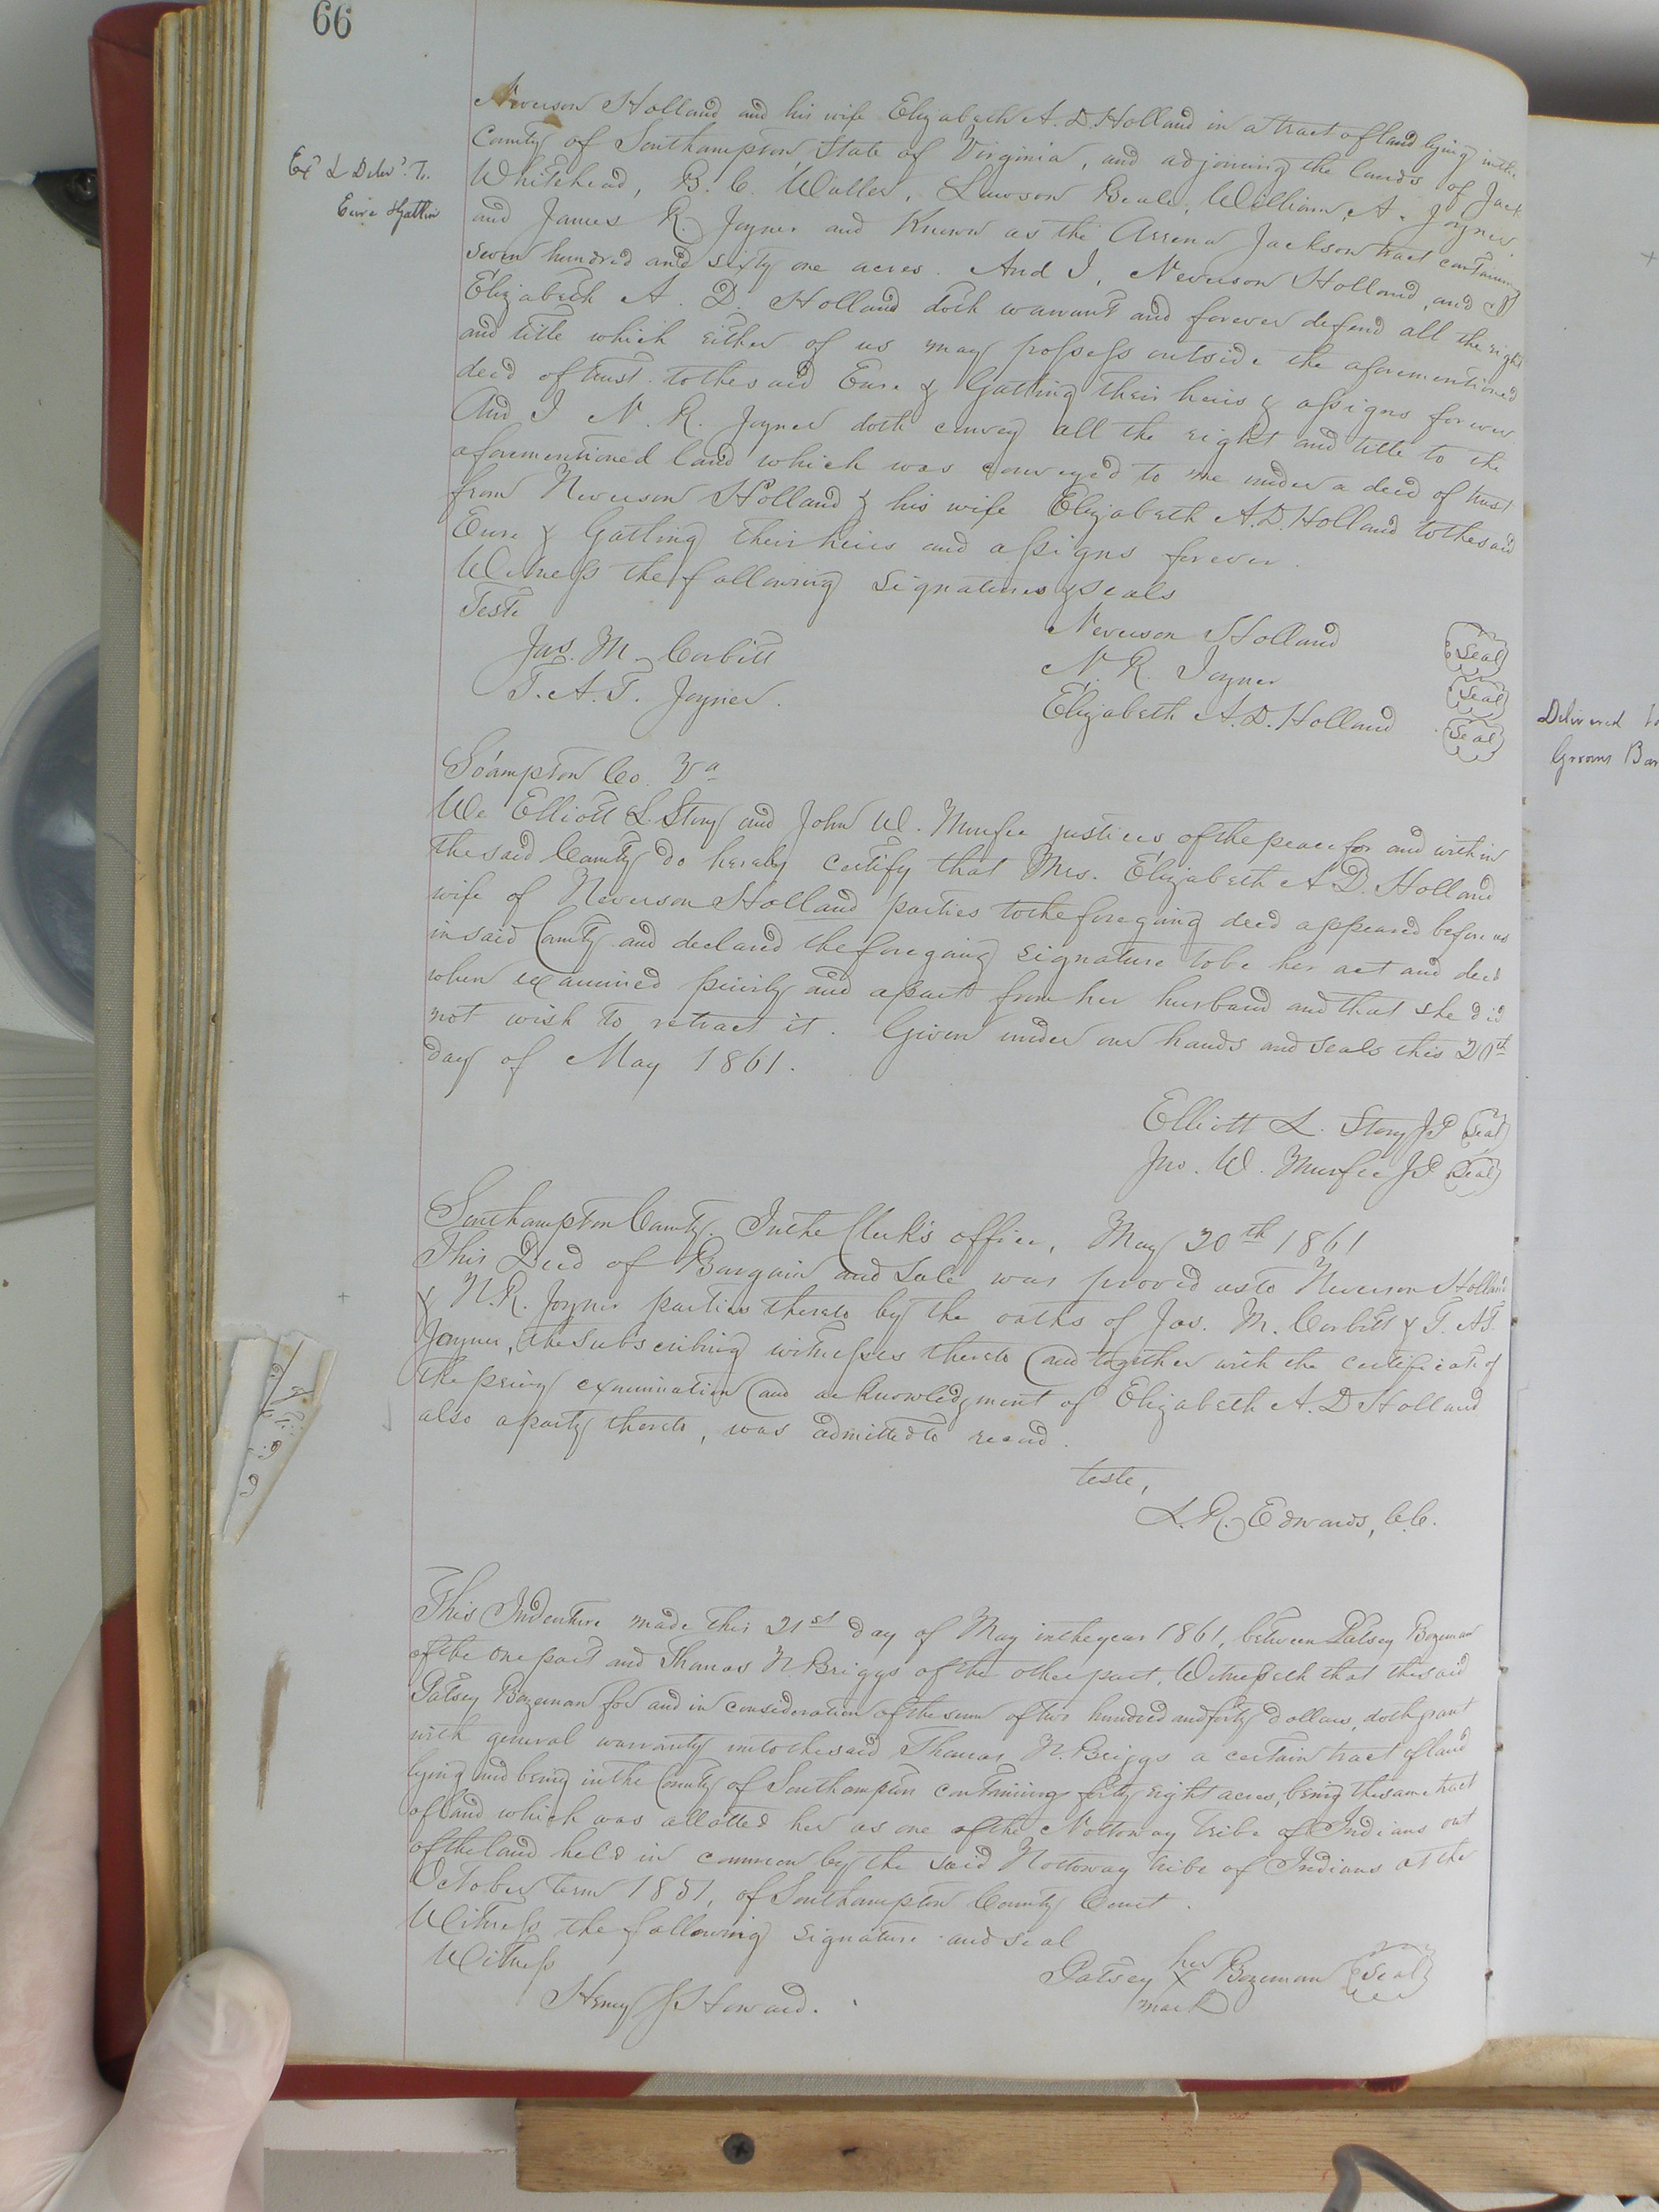 66
Neverson Holland and his wife Elizabeth A. D. Holland in a tract of land lying in the
County of Southampton, State of Virginia, and adjoining the lands of Jack
Ex.d & Deliv.d To
Eure & Gatlin
Whitehead, B. C. Waller, Lawson Beale, William A. Joyner
and James R. Joyner and Known as the Jackson tract containing
seven hundred and sixty one acres. And I, Neverson Holland, and I
Elizabeth A. D. Holland doth warrant and forever defend all the right
and title which either of us may possess outside the aforementioned
deed of trust. to the said Eure & Gatling their heirs & assigns forever.
And I N. R. Joyner doth convey all the right and title to the
aforementioned land which was conveyed to me under a deed of trust
from Neverson Holland & his wife Elizabeth A. D. Holland to the said
Eure & Gatling their heirs and assigns forever.
Witness the following signatures & seals
Teste
Neverson Holland Seal
Jas. M. Corbitt
N. R. Joyner Seal
T. A. T. Joyner.
Elizabeth A. D. Holland Seal
Delivered to
So'ampton Co. Va
We Elliott L. Story and John W. Murfee justices of the peace for and within
the said County do hereby certify that Mrs. Elizabeth A. D. Holland
wife of Neverson Holland parties to the foregoing deed appeared before us
in said County and declared the foregoing signature to be her act and deed
when examined privily and apart from her husband and that she did
not wish to retract it. Given under our hands and seals this 20th
day of May 1861.
Elliott L. Story JP Seal
Jno. W. Murfee JP Seal
Southampton County. In the Clerk's office, May 20th 1861
This Deed of Bargain and Sale was proved as to Neverson Holland
& N. R. Joyner parties thereto by the oaths of Jas. M. Corbitt & T. A. T.
Joyner, the subscribing witnesses thereto and together with the certificate of
the privy examination and acknowledgment of Elizabeth A. D. Holland
also a party thereto, was admitted to record.
teste,
L. R. Edwards, C.C.
This Indenture made this 21st day of May in the year 1861, between Patsey Bozeman
of the one part and Thomas N Briggs of the other part, Witnesseth that the said
Patsey Bozeman for and in consideration of the sum of two hundred and forty dollars, doth grant
with general warranty unto the said Thomas N. Briggs a certain tract of land
lying and being in the County of Southampton containing forty eight acres, being the same tract
of land which was allotted her as one of the Nottoway Tribe of Indians out
of the land held in common by the said Nottoway tribe of Indians at the
October term 1851, of Southampton County Court.
Witness the following signature and seal
Witness
her
Patsey X Bozeman Seal
mark
Henry J Howard.